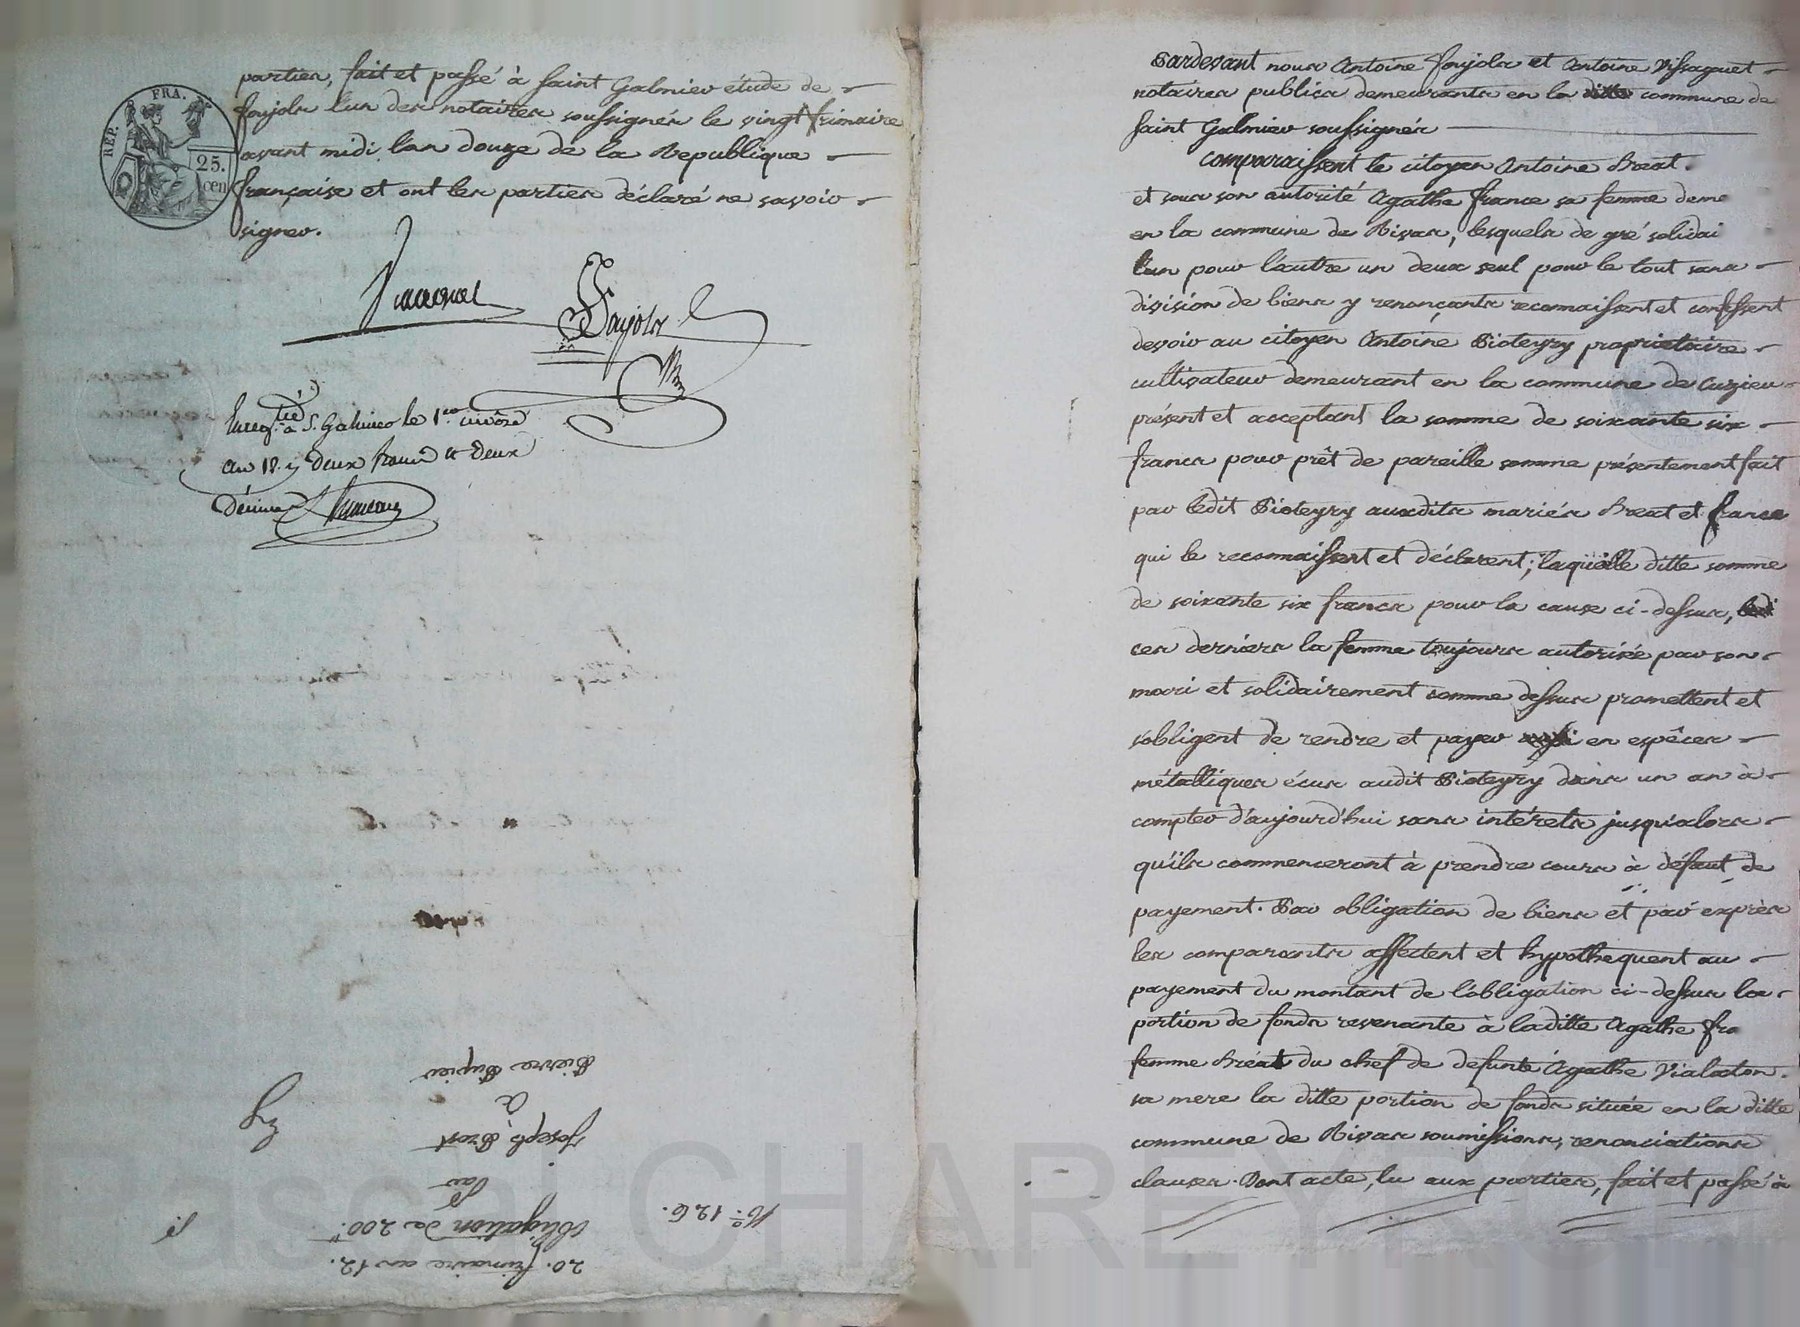 REP. FRA.
25.
cen
parties, fait et passé à Saint Galmier étude de
Sonjols l'un des notaires soussignés le vingt frimaire
avant midi l'an douze de la Republique
française et ont les parties déclaré ne savoir
signer.
à S.t Galmier le 1.er nivôse
an 12. deux francs et deux
Décimes
20. frimaire an 12.
Obligation de 200.f
par
Joseph Brost
à
Pierre Dupier
N.o 126.
Pardevant nous Antoine Sonjols et Antoine Vissaguet
notaires publics demeurants en la commune de
Saint Galmier soussignés
comparaissent le citoyen Antoine Breat.
et sous son autorité Agathe france sa femme deme
en la commune de Rivas, lesquels de gré solidai
l'un pour l'autre un deux seul pour le tout sans
division de biens y renonçants reconnaissent et confessent
devoir au citoyen Antoine Pioteyry proprietaire
cultivateur demeurant en la commune de Cuzieu
présent et acceptant la somme de soixante six
francs pour prêt de pareille somme présentement fait
par ledit Pioteyry auxdits mariés Breat et france
qui le reconnaissent et déclarent; laquelle ditte somme
de soixante six francs pour la cause ci-dessus,
ces derniers la femme toujours autorisée par son
mari et solidairement comme dessus promettent et
s'obligent de rendre et payer en espêces
métalliques écus audit Pioteyry dans un an à
compter d'aujourd'hui sans intérets jusqu'alors
qu'ils commenceront à prendre cours à défaut de
payement. Par obligation de biens et par exprès
les comparants affectent et hypothequent au
payement du montant de l'obligation ci-dessus la
portion de fonds revenante à laditte Agathe fra
femme Bréat du chef de defunte Agathe Vialaton.
sa mere la ditte portion de fonds située en la ditte
commune de Rivas soumissions, renonciations
clauses. Dont acte, lu aux parties, fait et passé à
Pascal CHAREYRON